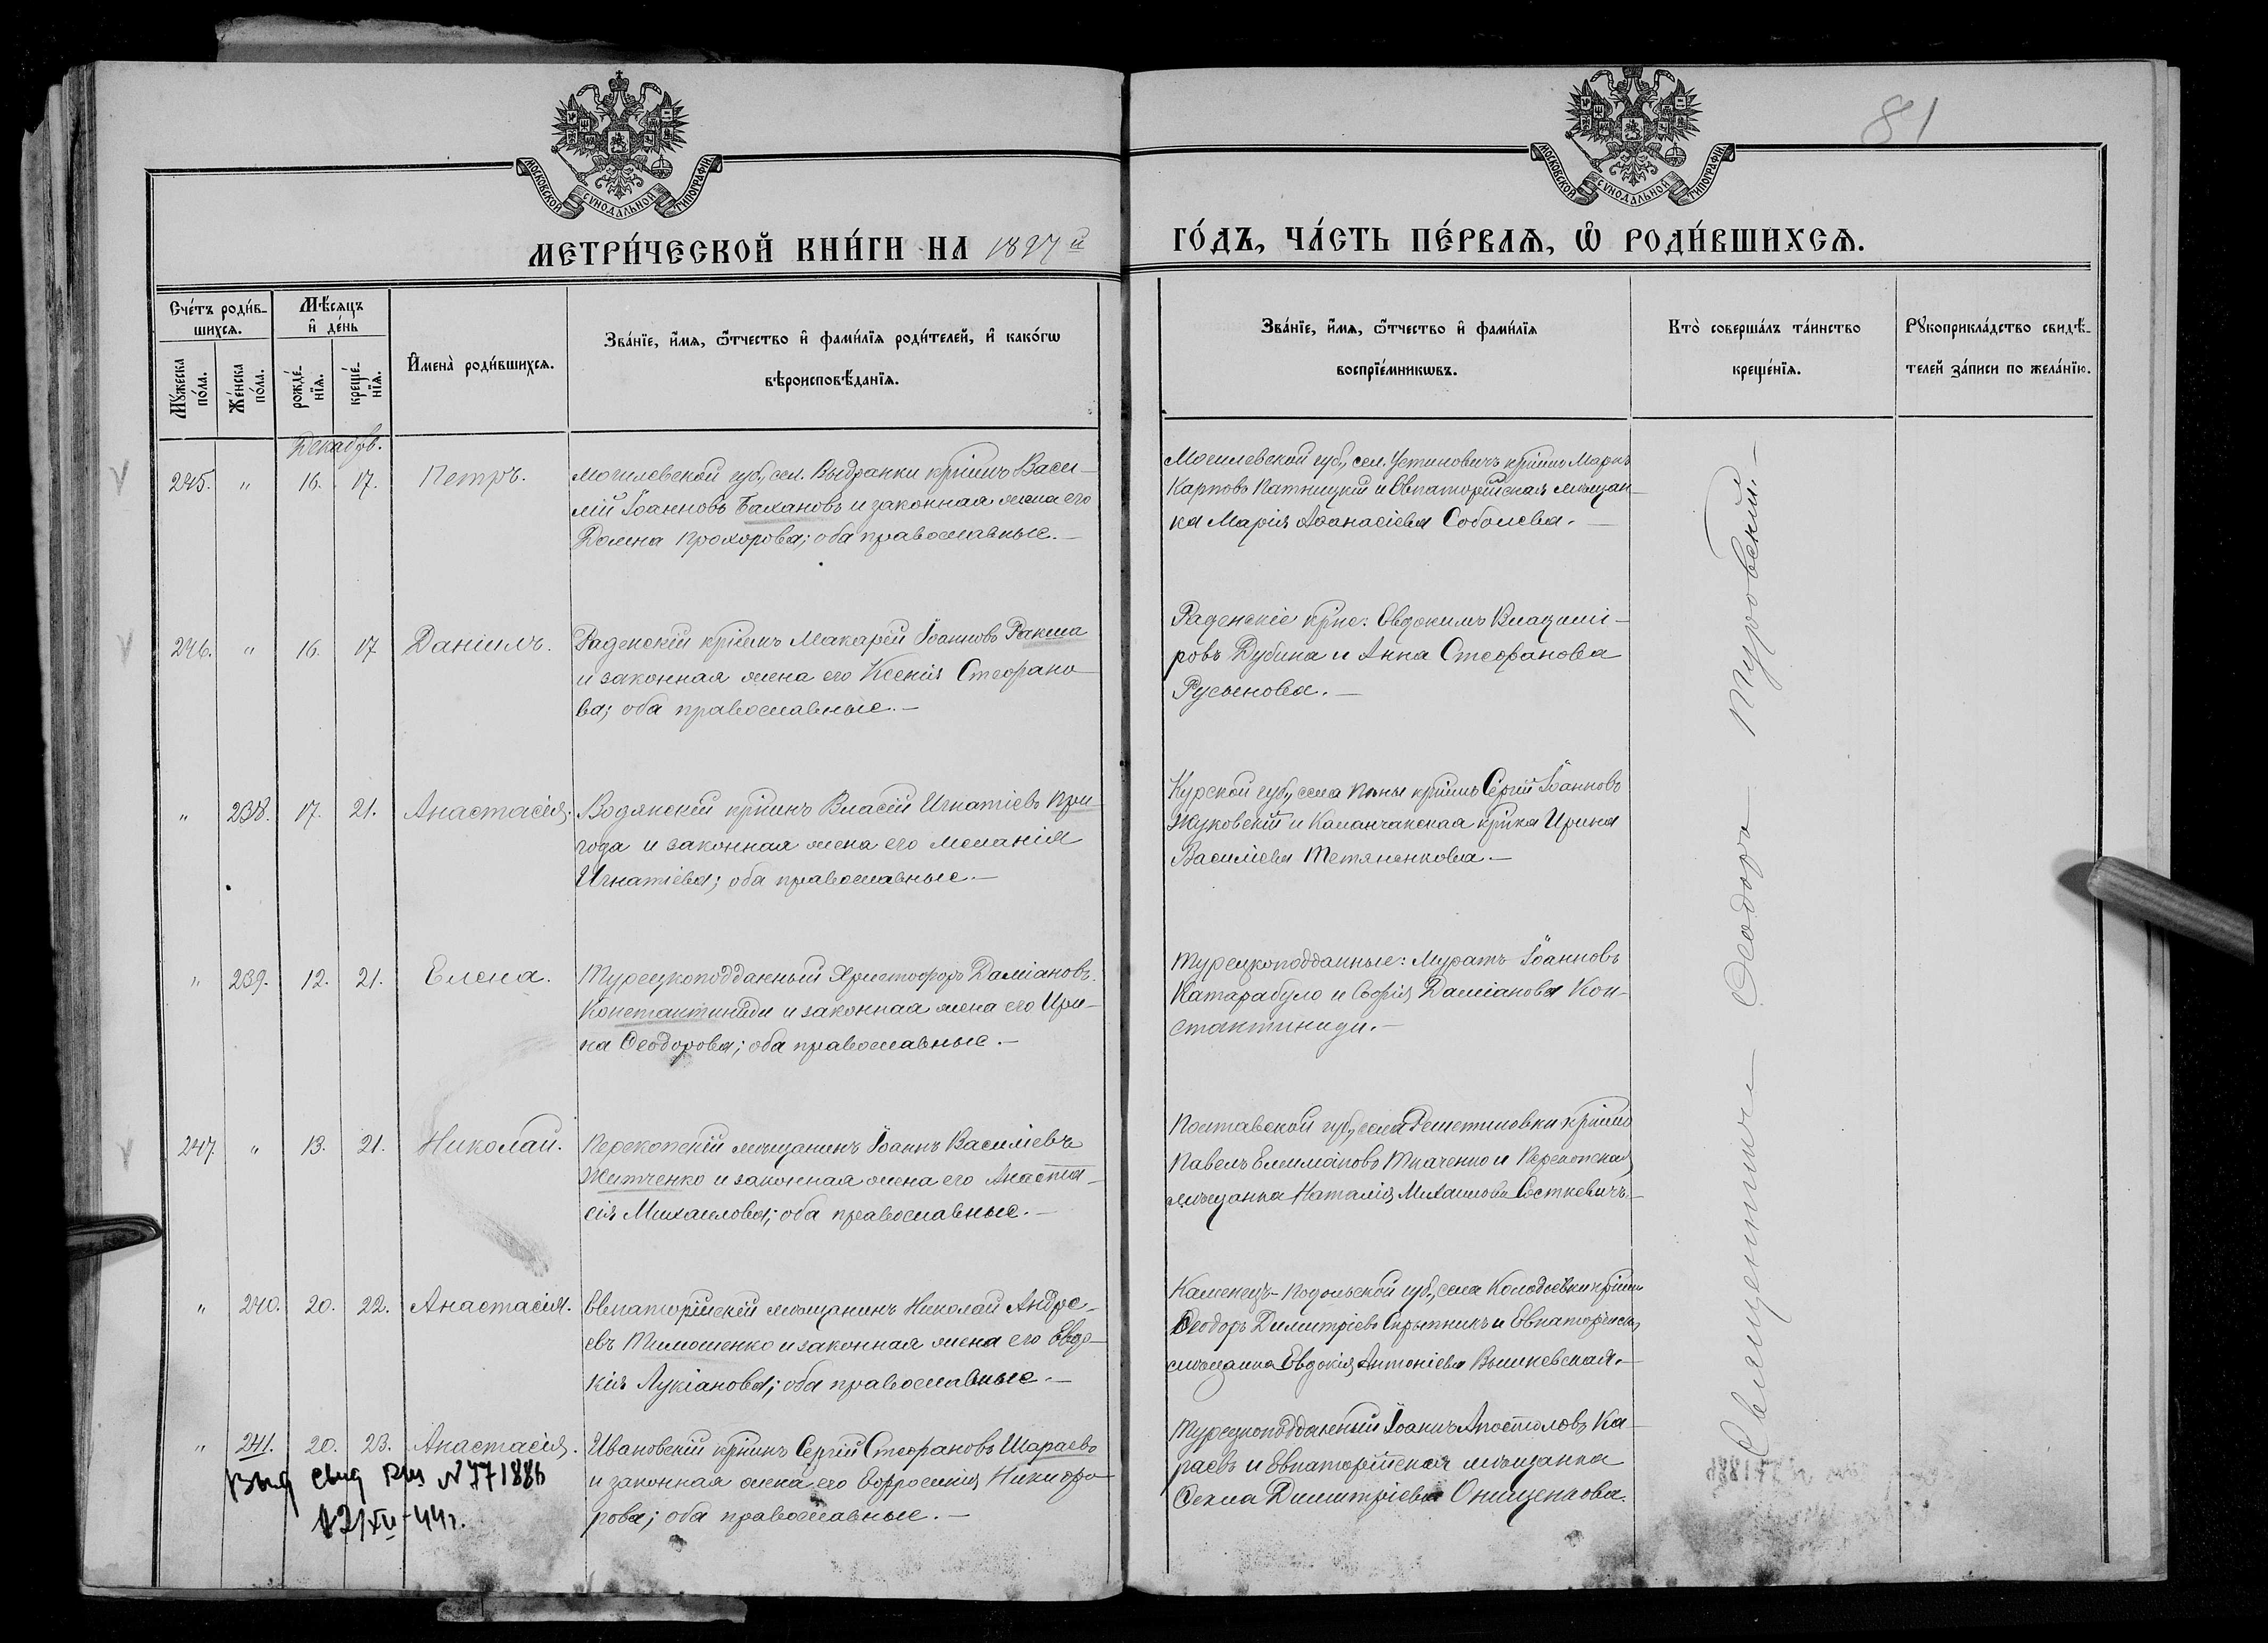 81
МОСКОВСКОЙ СУНОДАЛЬНОЙ ТИПОГРАФІИ
МОСКОВСКОЙ СУНОДАЛЬНОЙ ТИПОГРАФІИ
МЕТРИ́ЧЕСКОЙ КНИ́ГИ НА 1897 й
ГО́ДЪ, ЧА́СТЬ ПЕ́РВАѦ, Ѡ РОДИ́ВШИХСѦ.
Сче́тъ роди́в-
шихсѧ.
Мꙋ́жеска
по́ла.
Же́нска
по́ла.
Мѣ́сѧцъ
и҆ де́нь
рожде́-
нїѧ.
креще́-
нїѧ.
И҆мена̀ роди́вшихсѧ.
Зва́нїе, и҆́мѧ, ѻ҆́тчество и҆ фами́лїѧ роди́телей, и҆ како́гѡ
вѣроисповѣ́данїѧ.
Зва́нїе, и҆́мѧ, ѻ҆́тчество и҆ фами́лїѧ
воспрїе́мникѡвъ.
Кто̀ соверша́лъ та́инство
креще́нїѧ.
Рꙋкоприкла́дство свидѣ́-
телей за́писи по жела́нїю.
Декабрь.
245. " 16. 17. Петръ.
Могилевской губ., сел. Выдранки крінинъ Васи-
лій Іоанновъ Бахановъ и законная жена его
Домна Прохорова; оба православные.—
Могилевской губ., сел. Устиновичъ крінинъ Маркъ
Карповъ Патницкій и Евпаторійская мѣщан-
ка Марія Аѳанасіева Соболева.—
246. " 16. 17 Даніилъ.
Раденскій крінинъ Макарій Іоанновъ Ракша
и законная жена его Ксенія Стефано-
ва; оба православные.—
Раденскіе кр-не: Евдокимъ Владимі-
ровъ Дубина и Анна Стефанова
Русенова.—
" 238. 17. 21. Анастасія.
Водянскій крінинъ Власій Игнатіевъ При-
года и законная жена его Меланія
Игнатіева; оба православные.—
Курской губ., села крінинъ Сергій Іоанновъ
Жуковскій и Каланчакская кр-ка Ирина
Василіева Тетяненкова.—
" 239. 12. 21. Елена.
Турецкоподданный Христофоръ Даміановъ
Константиниди и законная жена его Ири-
на Ѳеодорова; оба православные.—
Турецкоподданные: Муратъ Іоанновъ
Катарабуло и Софія Даміанова Кон-
стантиниди.—
247. " 13. 21. Николай.
Перекопскій мѣщанинъ Іоаннъ Василіевъ
Житченко и законная жена его Анаста-
сія Михаилова; оба православные.—
Полтавской губ., села Решетиловки крінинъ
Павелъ Ткаченко и Перекопская
мѣщанка Наталія Михаилова Состкевичъ.—
" 240. 20. 22. Анастасія.
Евпаторійскій мѣщанинъ Николай Андре-
евъ Тимошенко и законная жена его Евдо-
кія Лукіанова; оба православные.—
Каменецъ-Подольской губ., села Колодіевки крінинъ
Ѳеодоръ Димитріевъ Скрыпникъ и Евпаторійская
мѣщанка Евдокія Антоніева Вышневская.—
" 241. 20. 23. Анастасія.
Ивановскій крінинъ Сергій Стефановъ Шараевъ
и законная жена его Евфросинія Никифо-
рова; оба православные.—
Турецкоподданный Іоаннъ Апостоловъ Ка-
раевъ и Евпаторійская мѣщанка
Ѳекла Димитріева Онищенкова.
Выд свид N 771886
12/XII-44г.
Священникъ Ѳеодоръ Туровскій.—